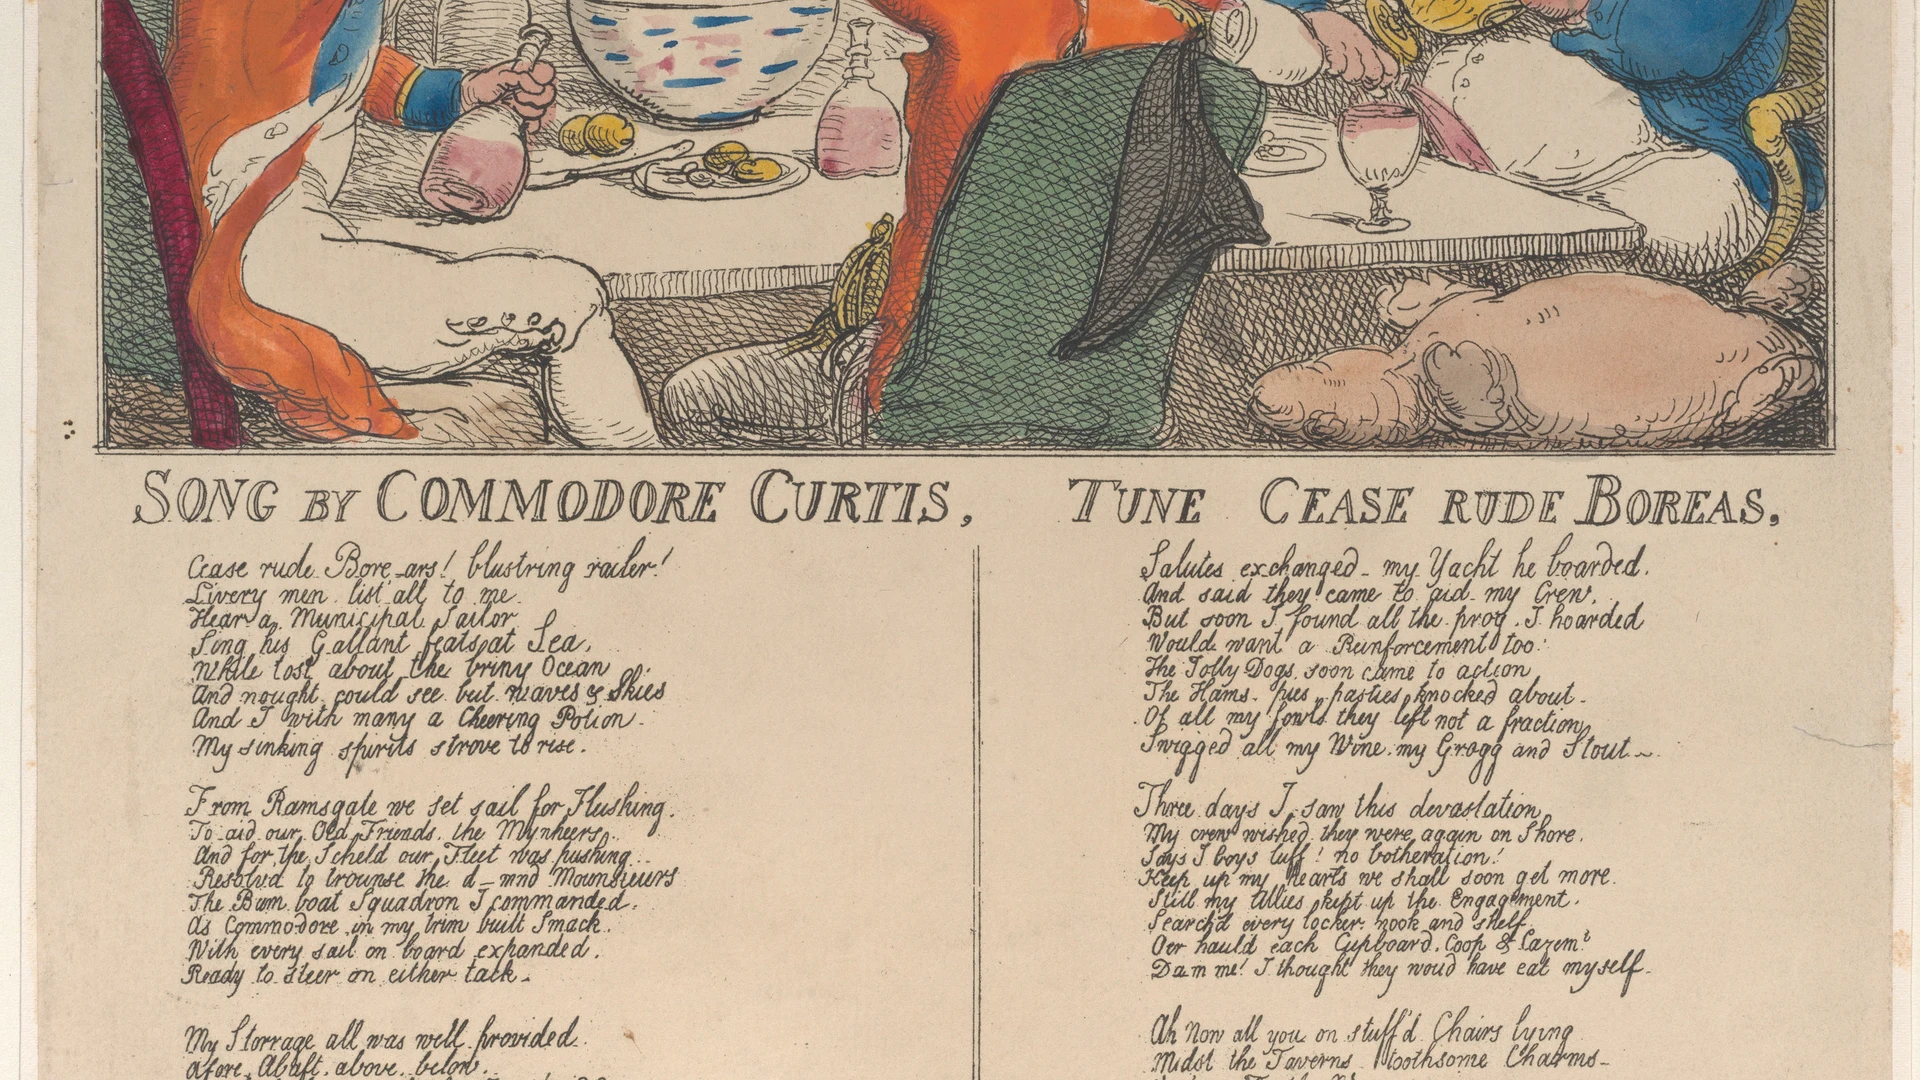 SONG BY COMMODORE CURTIS, TUNE CEASE RUDE BOREAS,
Cease rude Bore-ars! blustring railer!
Livery men list all to me
Hear a Municipal Sailor
Sing his Gallant feats at Sea,
While tost about the briny Ocean
And nought could see but waves & Skies
And I with many a Cheering Potion
My sinking spirits strove to rise.
From Ramsgate we set sail for Flushing
To aid our Old Friends, the Mynheers,
And for the Scheld our Fleet was pushing
Resolvd to trounse the d-mnd Mounsieurs
The Bum boat Squadron I commanded,
As Commodore in my trim built Smack
With every sail on board expanded,
Ready to steer on either tack-
My Storrage all was well provided
Afore, Abaft, above, below
Salutes exchanged - my Yacht he boarded,
And said they came to aid my Crew,
But soon I found all the prog I hoarded
Would want a Reinforcement too:
The Jolly Dogs soon came to action
The Hams, pies, pasties knocked about-
Of all my fowls they left not a fraction
Swigged all my Wine, my Grogg and Stout~
Three days I saw this devastation
My crew wished they were again on Shore.
Says I boys luff! no botheration!
Keep up my hearts we shall soon get more.
Still my Allies kept up the Engagement,
Search'd every locker nook and shelf
Oer hauld each Cupboard, Coop &
Dam me! I thought they woud have eat myself-
Ah Now all you on stuff'd Chairs lying
Midst the Taverns toothsome Charms-